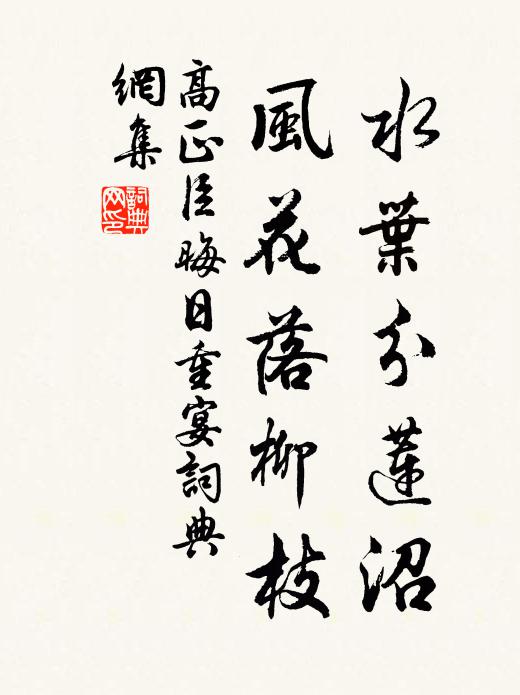 水葉分蓮沼
風花落柳枝
高正臣晦日重宴詞典
網集
詞典網印